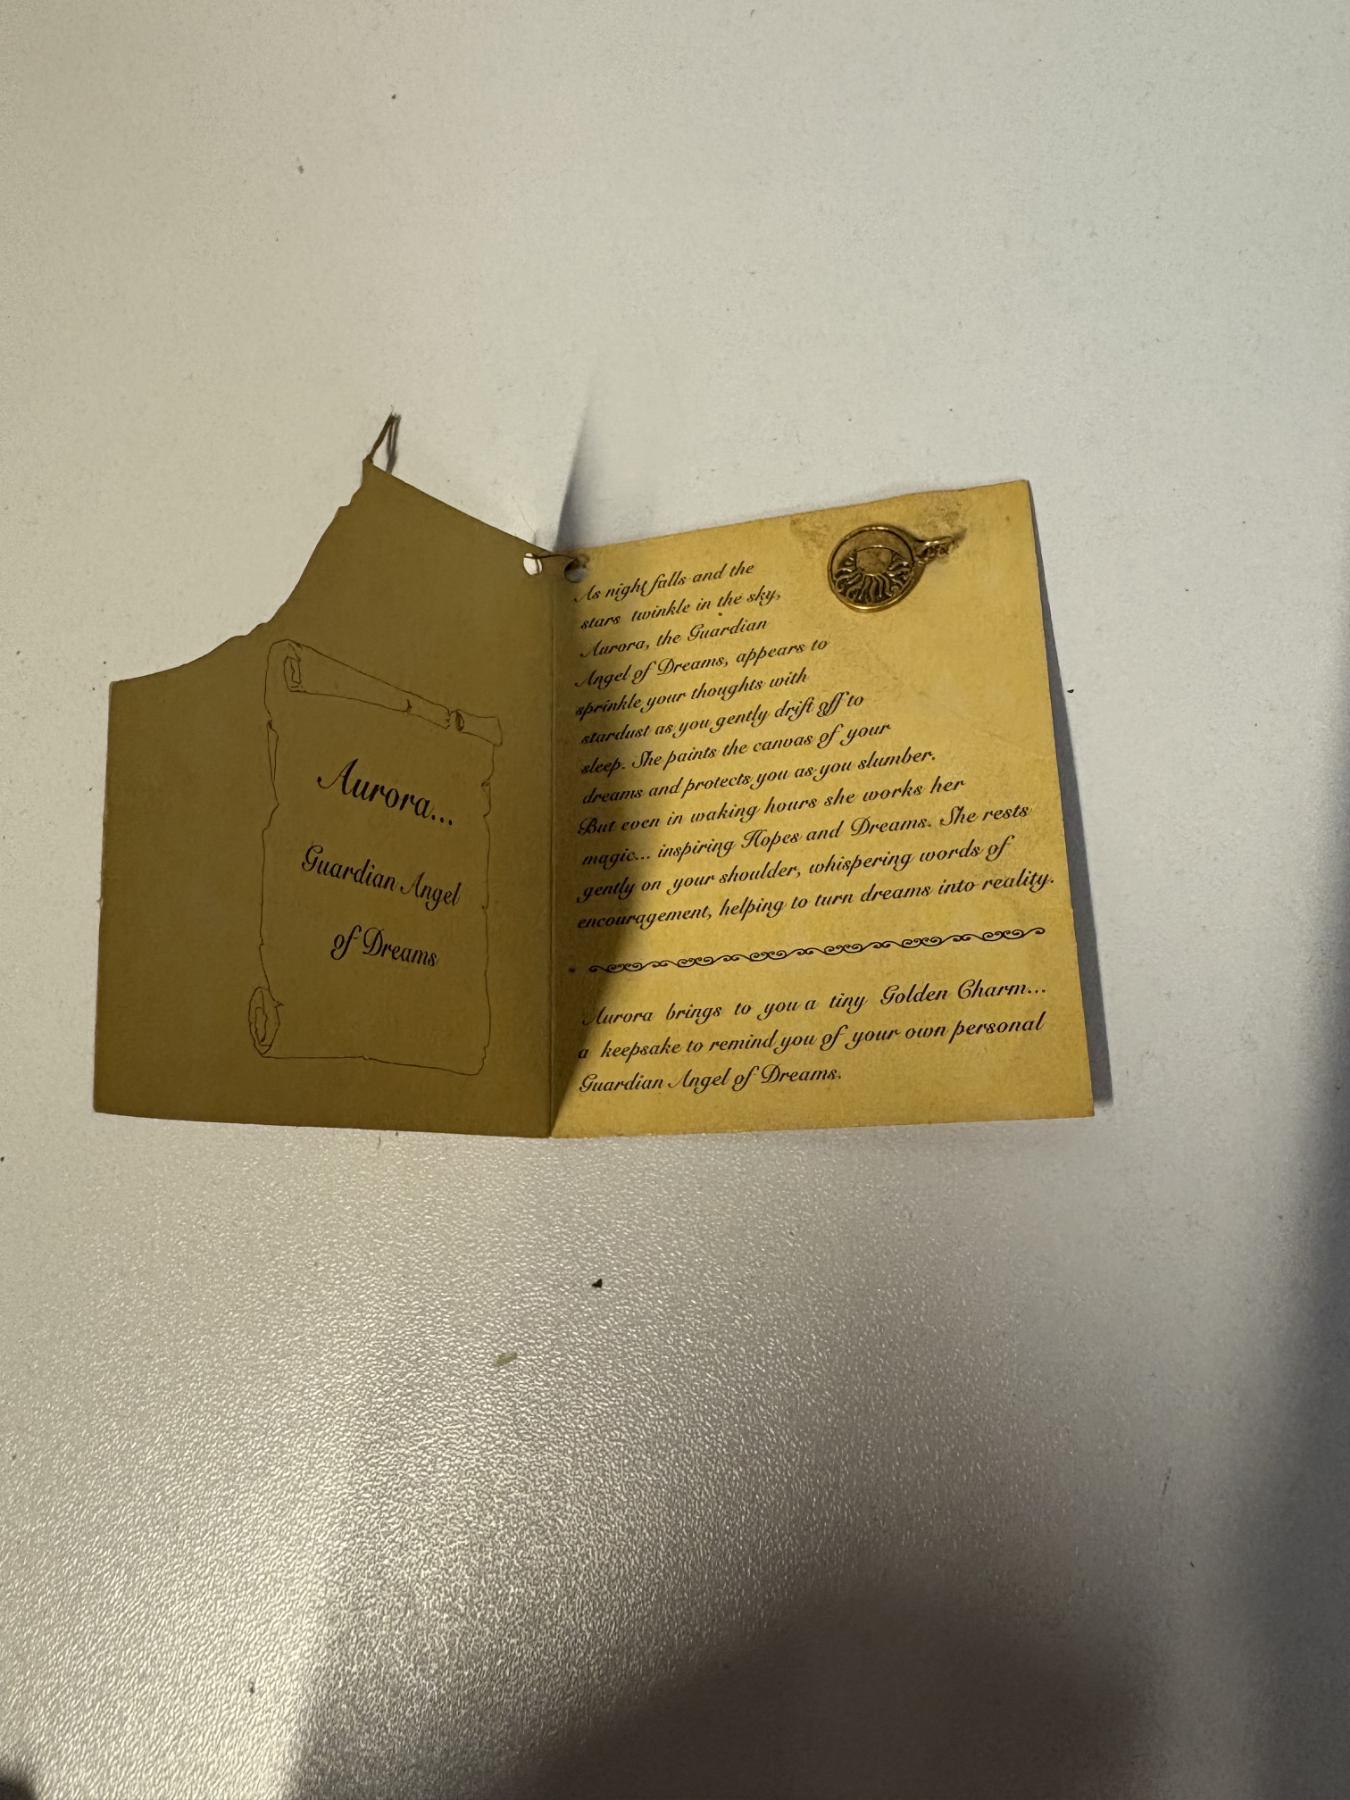 Aurora...
Guardian Angel
of Dreams
As night falls and the
stars twinkle in the sky,
Aurora, the Guardian
Angel of Dreams, appears to
sprinkle your thoughts with
stardust as you gently drift off to
sleep. She paints the canvas of your
dreams and protects you as you slumber.
But even in waking hours she works her
magic... inspiring Hopes and Dreams. She rests
gently on your shoulder, whispering words of
encouragement, helping to turn dreams into reality.
Aurora brings to you a tiny Golden Charm...
a keepsake to remind you of your own personal
Guardian Angel of Dreams.